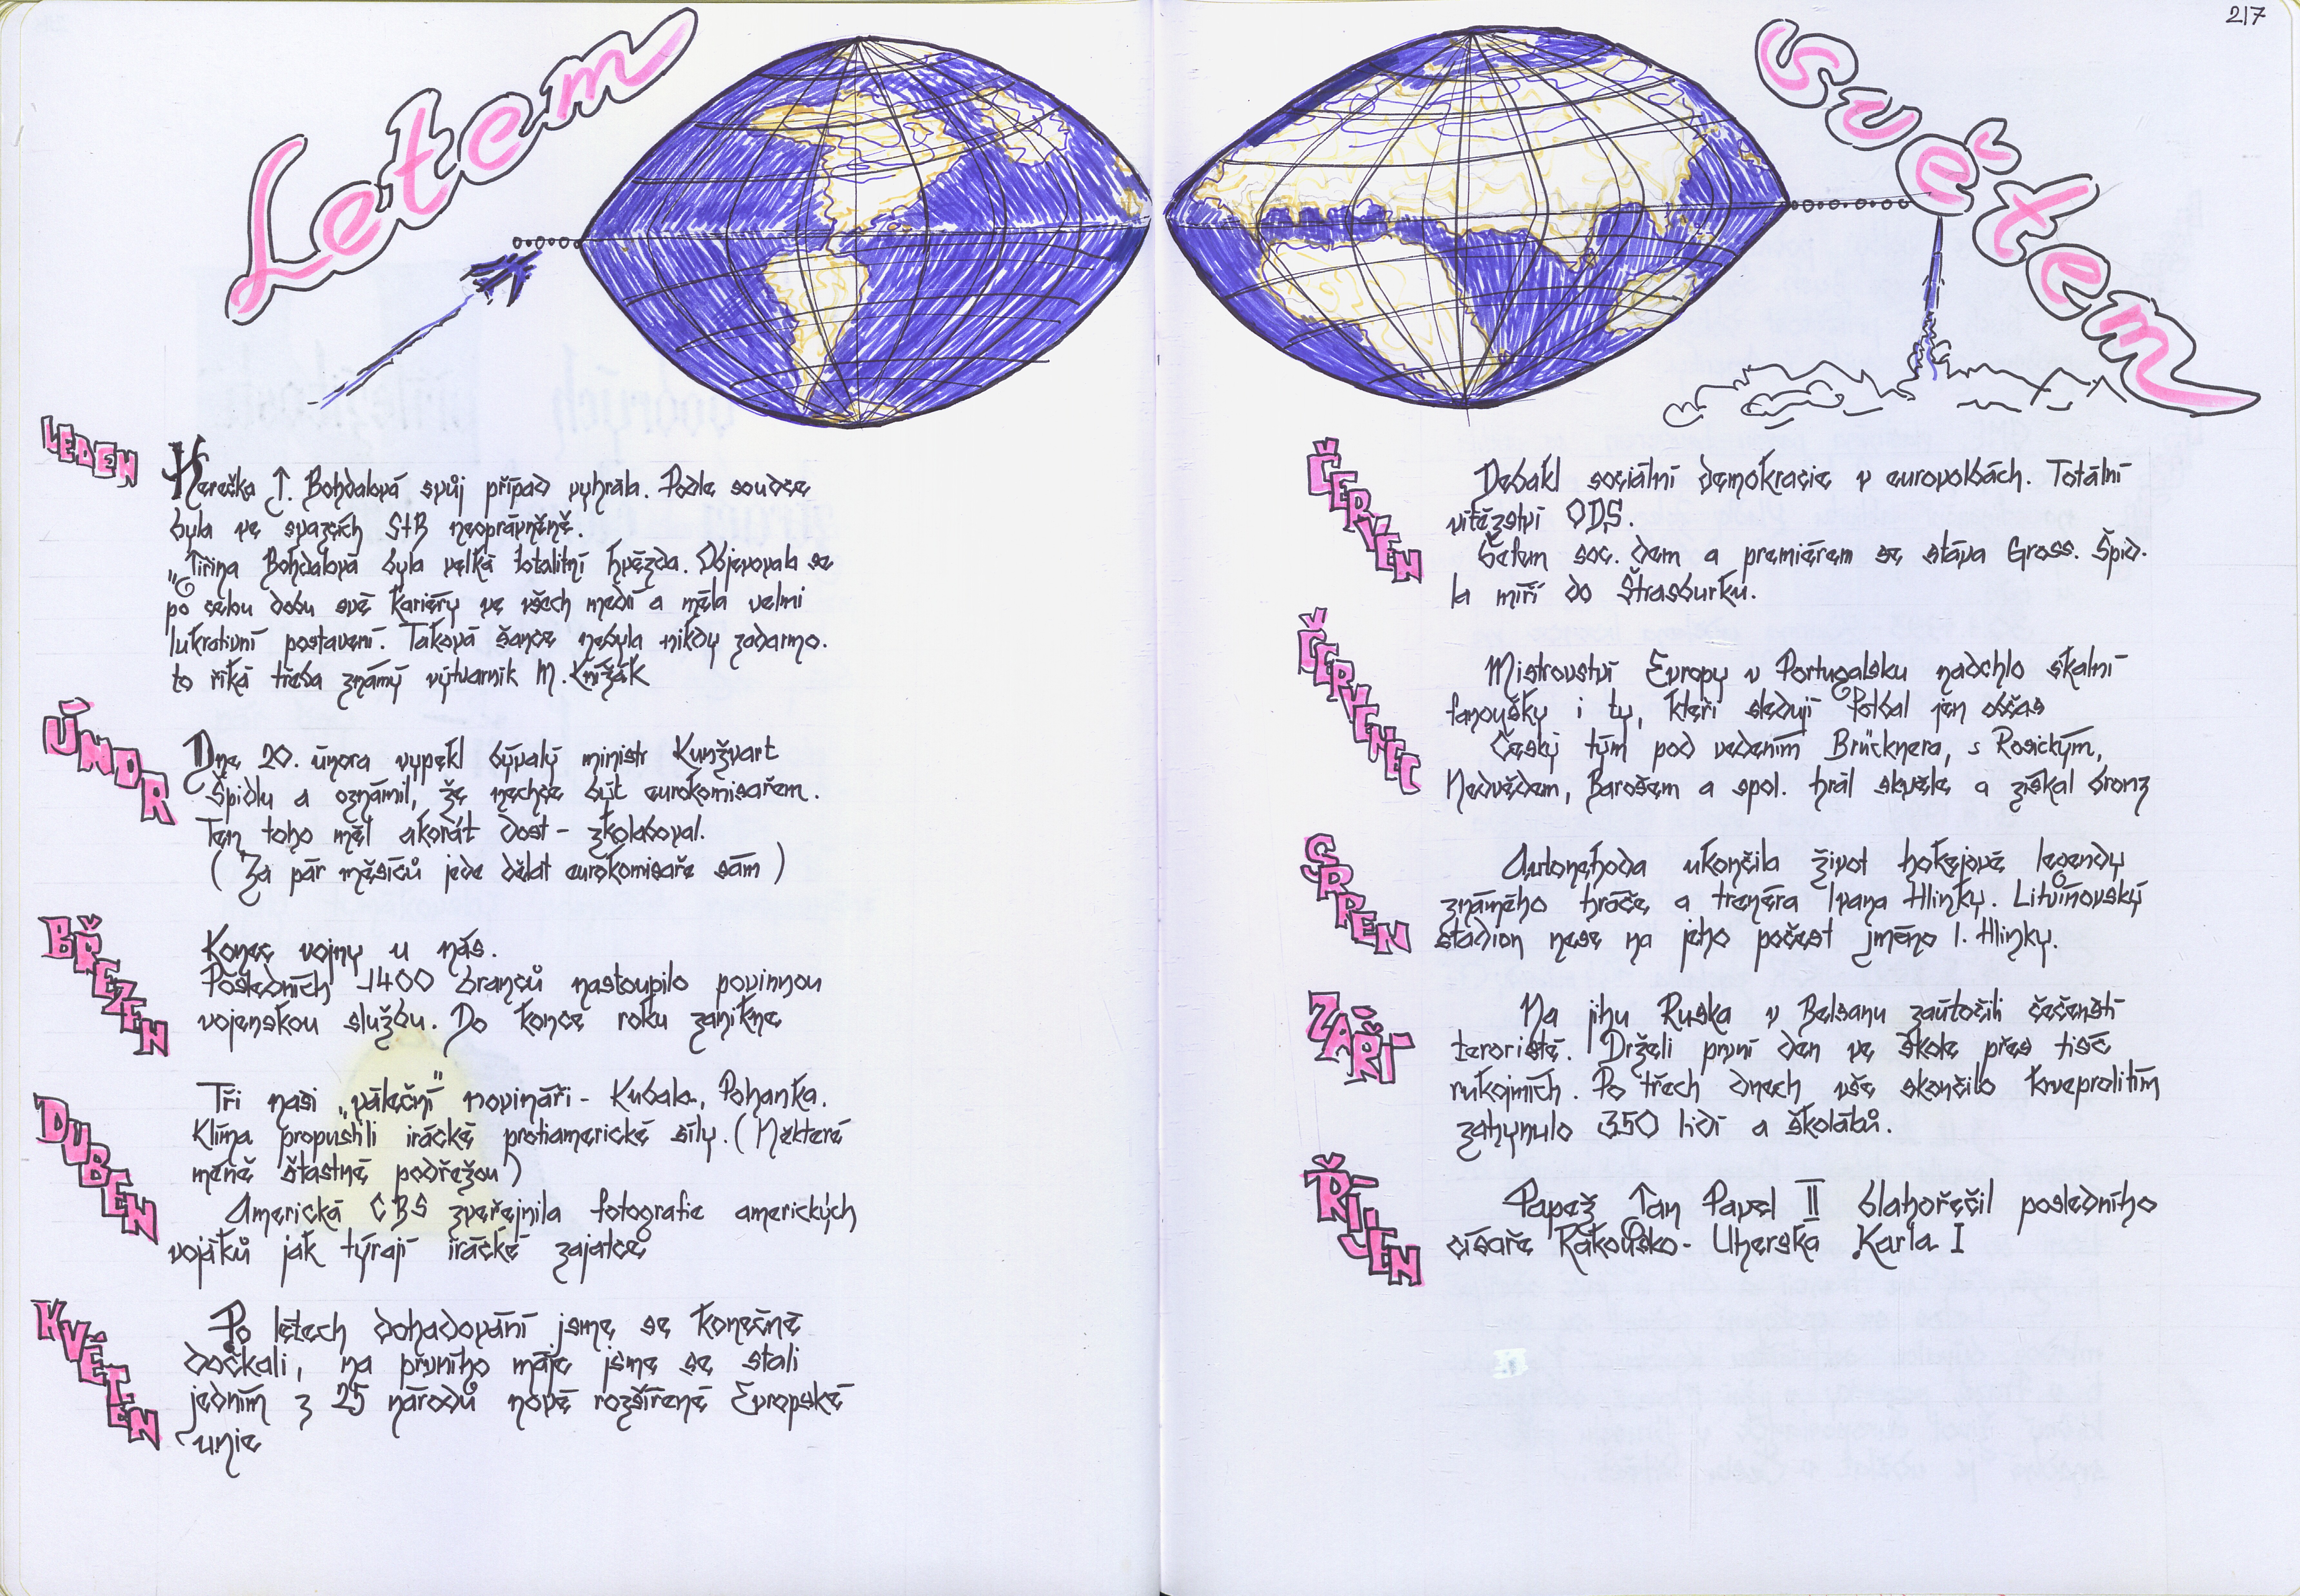 217
Letem
světem
LEDEN
Herečka J. Bohdalová svůj případ vyhrála. Podle soudce
byla ve svazcích StB neoprávněně.
"Jiřina Bohdalová byla velká totalitní hvězda. Objevovala se
po celou dobu své kariéry ve všech medií a měla velmi
lukrativní postavení. Taková šance nebyla nikdy zadarmo.
to říká třeba známý výtvarník M. Knížák
ÚNOR
Dne 20. února vypekl bývalý ministr Kunžvart
Špidlu a oznámil, že nechce být eurokomisařem.
Ten toho měl akorát dost - zkolaboval.
(Za pár měsíců jede dělat eurokomisaře sám)
BŘEZEN
Konec vojny u nás.
Posledních 1400 branců nastoupilo povinnou
vojenskou službu. Do konce roku zanikne
DUBEN
Tři naši „váleční" novináři - Kubala, Pohanka,
Klíma propustili irácké protiamerické síly. (Některé
méně šťastné podřežou)
Americká CBS zveřejnila fotografie amerických
vojáků jak týrají irácké zajatce
KVĚTEN
Po létech dohadování jsme se konečně
dočkali, na prvního máje jsme se stali
jedním z 25 národů nově rozšířené Evropské
unie
ČERVEN
Debakl sociální demokracie v eurovolbách. Totální
vítězství ODS.
Šéfem soc. dem a premiérem se stává Gross. Špid.
la míří do Štrasburku.
ČERVENEC
Mistrovství Evropy v Portugalsku nadchlo skalní
fanoušky i ty, kteří sledují fotbal jen občas
Český tým pod vedením Brücknera, s Rosickým,
Nedvědem, Barošem a spol. hrál skvěle a získal bronz
SRPEN
Autonehoda ukončila život hokejové legendy
známého hráče a trenéra Ivana Hlinky. Litvínovský
stadion nese na jeho počest jméno I. Hlinky.
ZÁŘÍ
Na jihu Ruska v Belsanu zaútočili čečenští
teroristé. Drželi první den ve škole přes tisíc
rukojmích. Po třech dnech vše skončilo krveprolitím
zahynulo 350 lidí a školáků.
ŘÍJEN
Papež Jan Pavel II blahořečil posledního
císaře Rakousko-Uherska Karla I